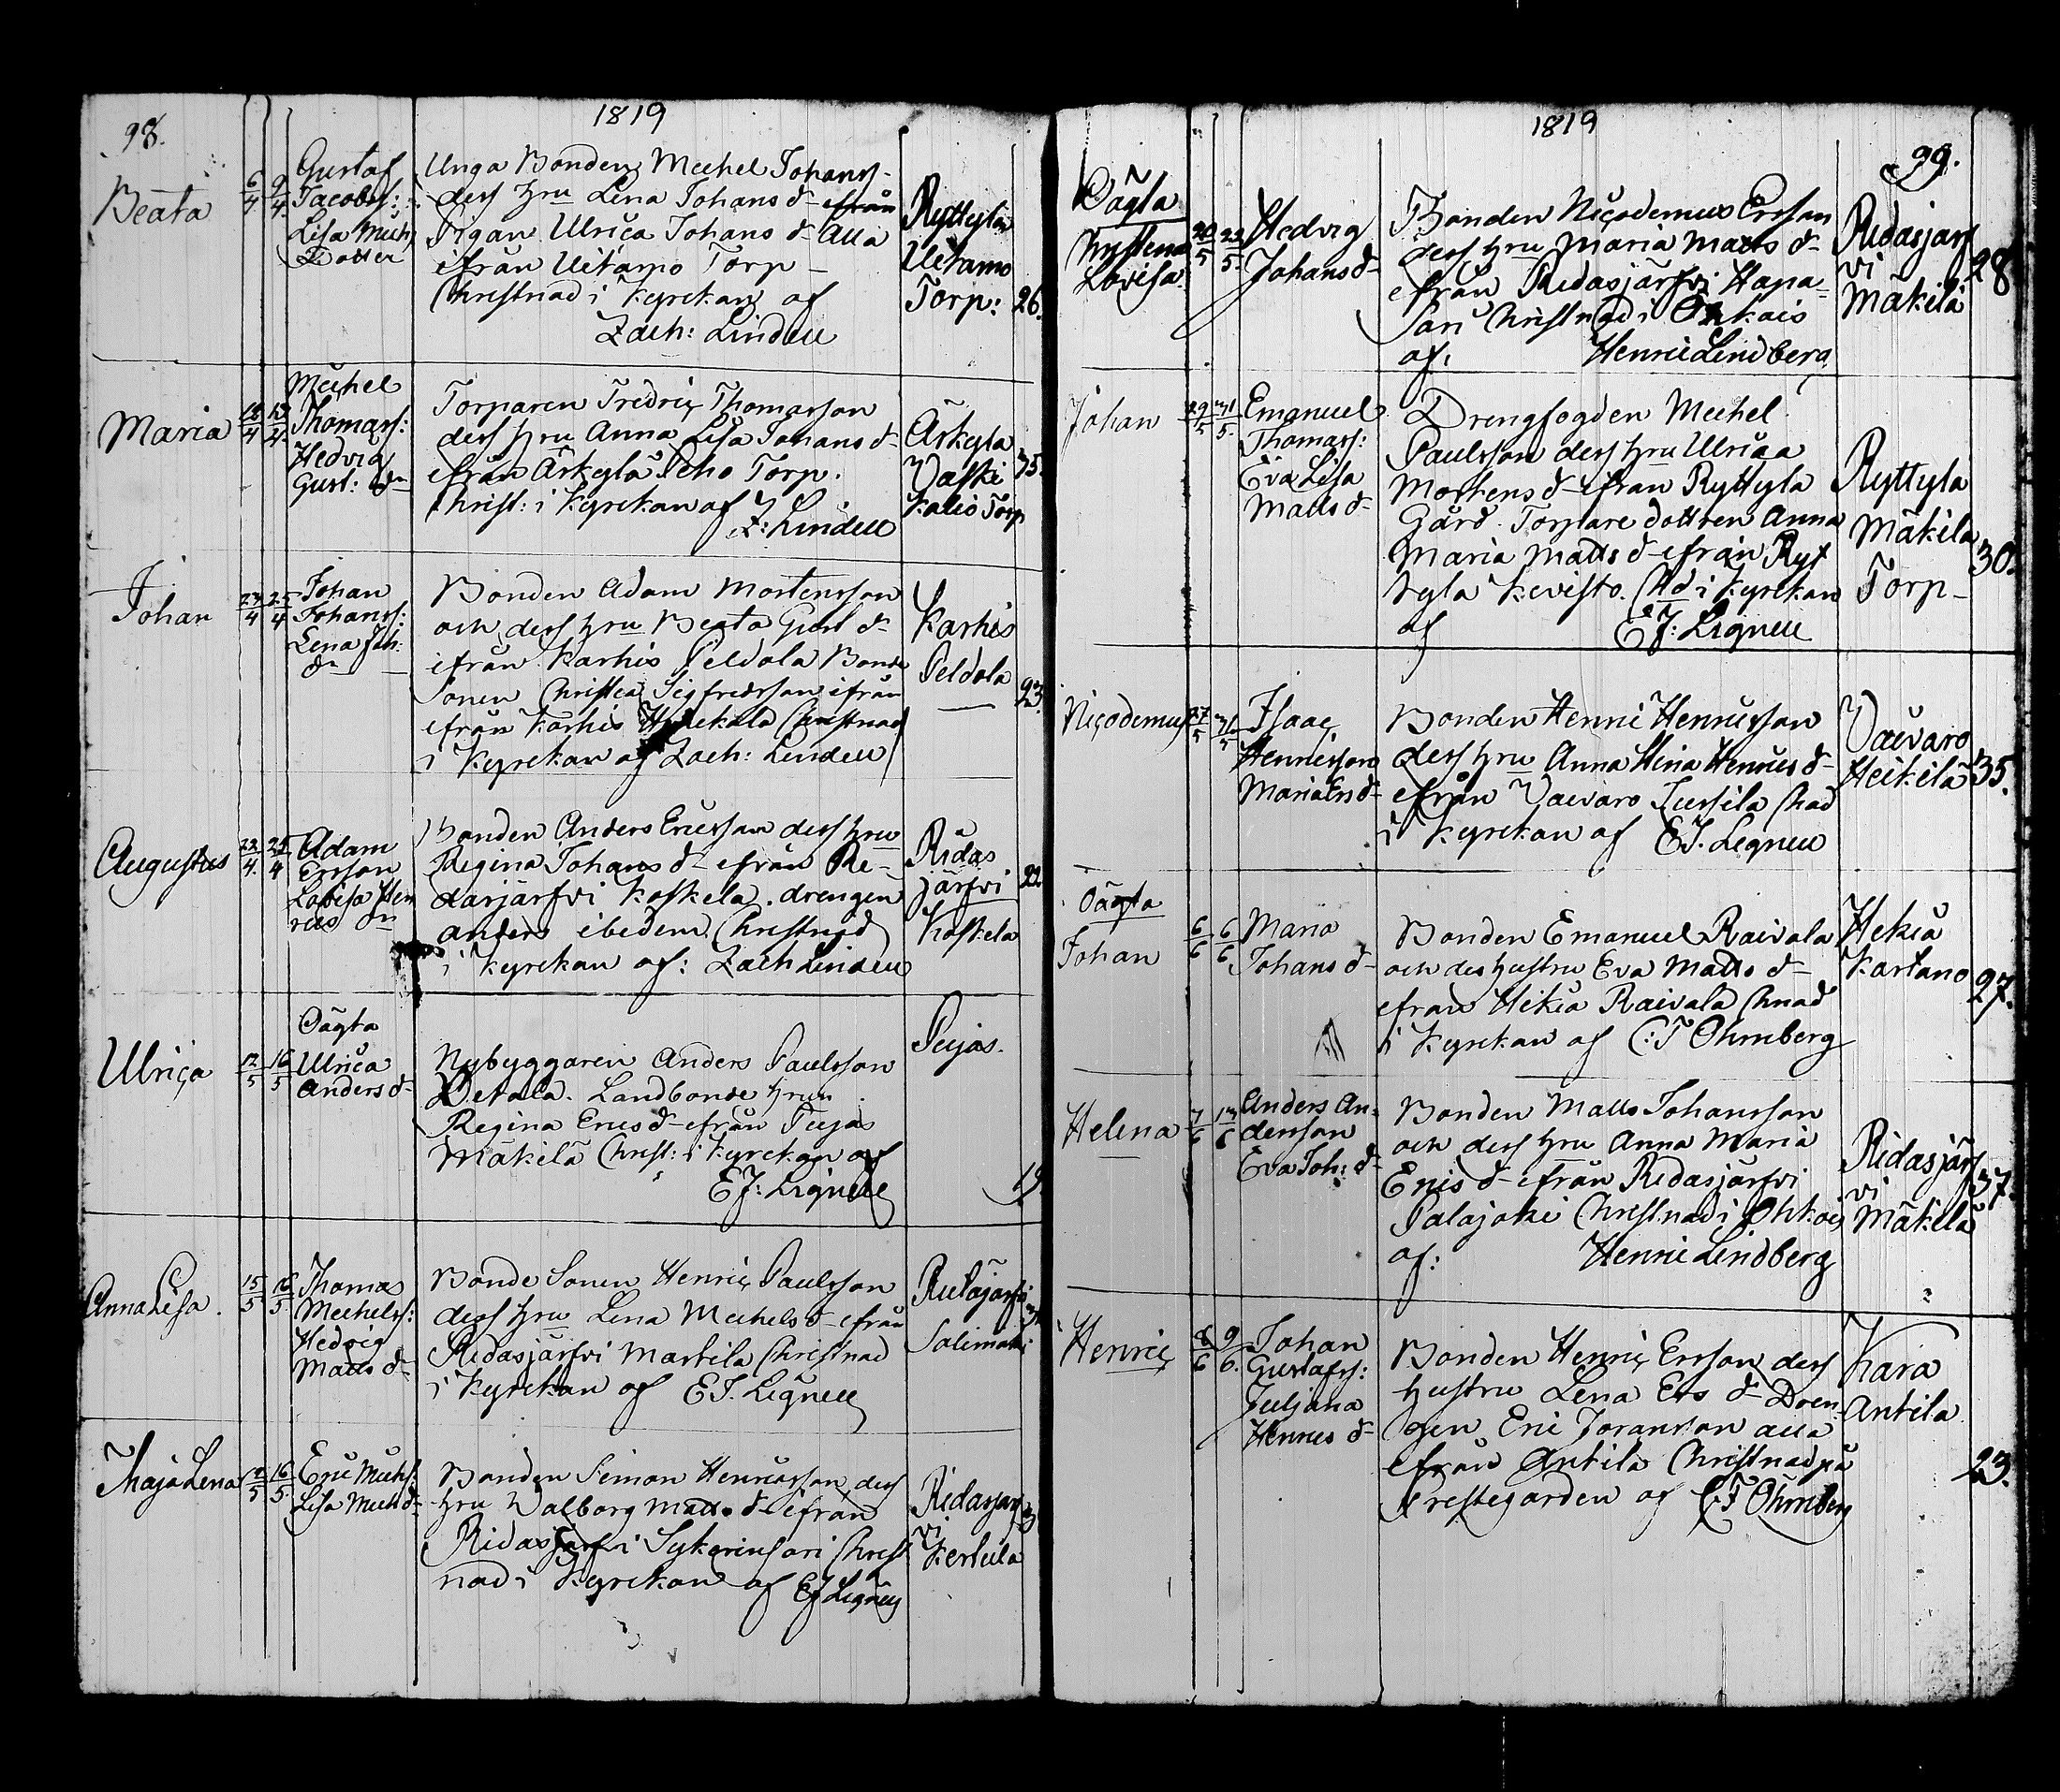 98.
1819
Beata
6/4
9/4.
Gustaf
Jacobss:
Lisa Mich
Dotter
Unga Bonden Michel Johanss-
dess hru Lena Johans d- efrån
Pigan Ulrica Johans d- alla
ifrån Uitamo Torp -
Christnad i Kyrckan af
Zach: Lindell
Ryttylä
Uitamo
Torp:
26.
Maria
12/4
13/4.
Michel
Thomass:
Hedvig
Gust: dr
Torparen Fredric Thomasson
dess hru Anna Lisa Johans d-
efrån Äskylä Peho Torp.
Christ: i Kyrckan af
Z: Lindell
Äskylä
Vaski
Kalio Torp
35.
Johan
23/4
25/4
Johan
Johanss:
Lena Joh:
dr
Bonden Adam Mortensson
och dess hru Beata Gust dr
ifrån Karhis Peldola Bonde
Sonen Christer Sigfredsson ifrån
efrån Karhis Christnad
i Kyrckan af Zach: Lindell
Karhis
Peldola
23.
Augustus
22/4.
25/4
Adam
Ersson
Lovisa Hen
rics dr
Bonden Anders Ericsson dess hru
Regina Johans d- efrån Re-
dasjärfvi Koskela. drengen
anders ibidem Christnad
i Kyrckan af: Zach Lindell
Ridas
järfvi
Koskela
22.
Ulrica
12/5
16/5
Oägta
Ulrica
Anders d-
Nybyggaren Anders Paulsson
Landbonde hrun
Regina Erics d- efrån Pujas
Mäkilä Christ: i Kyrckan af
EJ: Lignell
Pujas.
19.
Anna Lisa.
15/5
16/5.
Thomas
Michelss:
Hedvig
Matts d-
Bonde Sonen Henric Paulsson
dess hru Lena Michels d- efrån
Ridasjärfvi Martila Christnad
i Kyrckan af EJ. Lignell
Salimäki
Maja Lena
12/5
16/5.
Eric Michs:
Lisa Mich d-
Bonden Simon Henricsson, dess
hru Walborg Matts d- ifrån
Ridasjärfvi Sykärinsari Christ
nad i Kyrckan af EJ Lignell
Ridasjarf
vi
Kertula
1819
99.
Oägta
Christina
Lovisa.
20/5
22/5.
Hedvig
Johans d-
Bonden Nicodemus Ersson
dess hru Maria Matts d-
efrån Ridasjärfvi Hapa-
Sari Christnad i Ohkois
af. Henric Lindberg
Ridasjarf
vi
Mäkilä
28.
Johan
29/5
31/5.
Emanuel
Thomass:
Eva Lisa
Matts d-
Drengfogden Michel
Paulsson dess hru Ulrica
Mortens d- efrån Ryttylä
Gård. Torpare dottren Anna
Maria Matts d- efrån Ryt
tyla Kevisto. Chd i Kyrckan
af EJ: Lignell
Ryttyla
Mäkila
Torp-
30.
Nicodemus
27/5
31/5
Isaac
Henricsson
Maria Ers d-
Bonden Henric Henricsson
dess hru Anna Stina Henrics d-
efrån Vaivaro Jussila Chad
i Kyrckan af EJ. Lignell
Vaivaro
Heikilä
35.
Oägta
Johan
6/6
6/6
Maria
Johans d-
Bonden Emanuel Raivala
och des hustru Eva Matts d-
efran Hikiä Raivala Chnad
i Kyrckan af C: F Ohrnberg
Hekiä
Kartano
27.
Helena
7/6
13/6
Anders An-
dersson
Eva Joh: d-
Bonden Matts Johansson
och dess hru Anna Maria
Erics d- efrån Ridasjärfvi
Palajoki Christnad i Ohkois
af: Henric Lindberg
Ridasjärf
vi
Mäkilä
37.
Henric
8/6
9/6.
Johan
Gustafs:
Juliana
Henrics d-
Bonden Henric Ersson dess
hustru Lena Ers d- Dren-
gen Eric Joransson alla
efrån Antila Christnad på
Prestegården af C: F Ohrnberg
Kara
Antila
23.